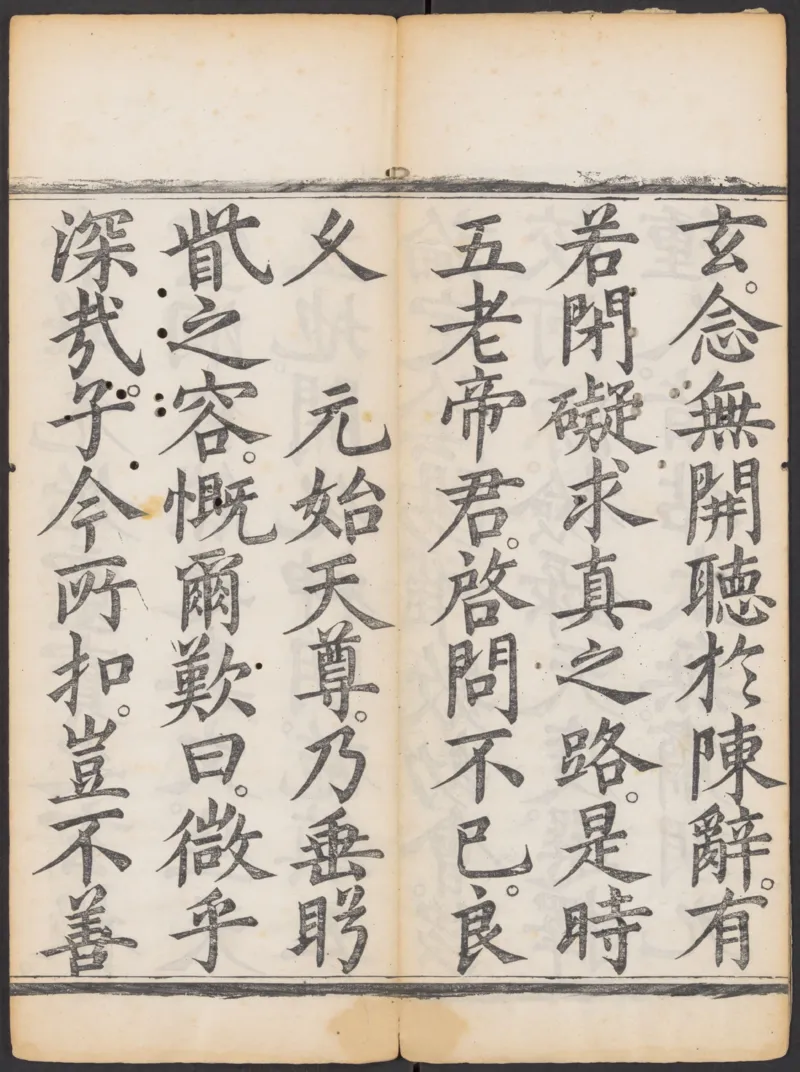 玄。念無開聴於陳辭。有
若閉礙求真之路。是時
五老帝君。啓問不已。良
乆　元始天尊。乃垂盻
眥之容。慨爾歎曰。微乎
深哉。子今所扣。豈不善